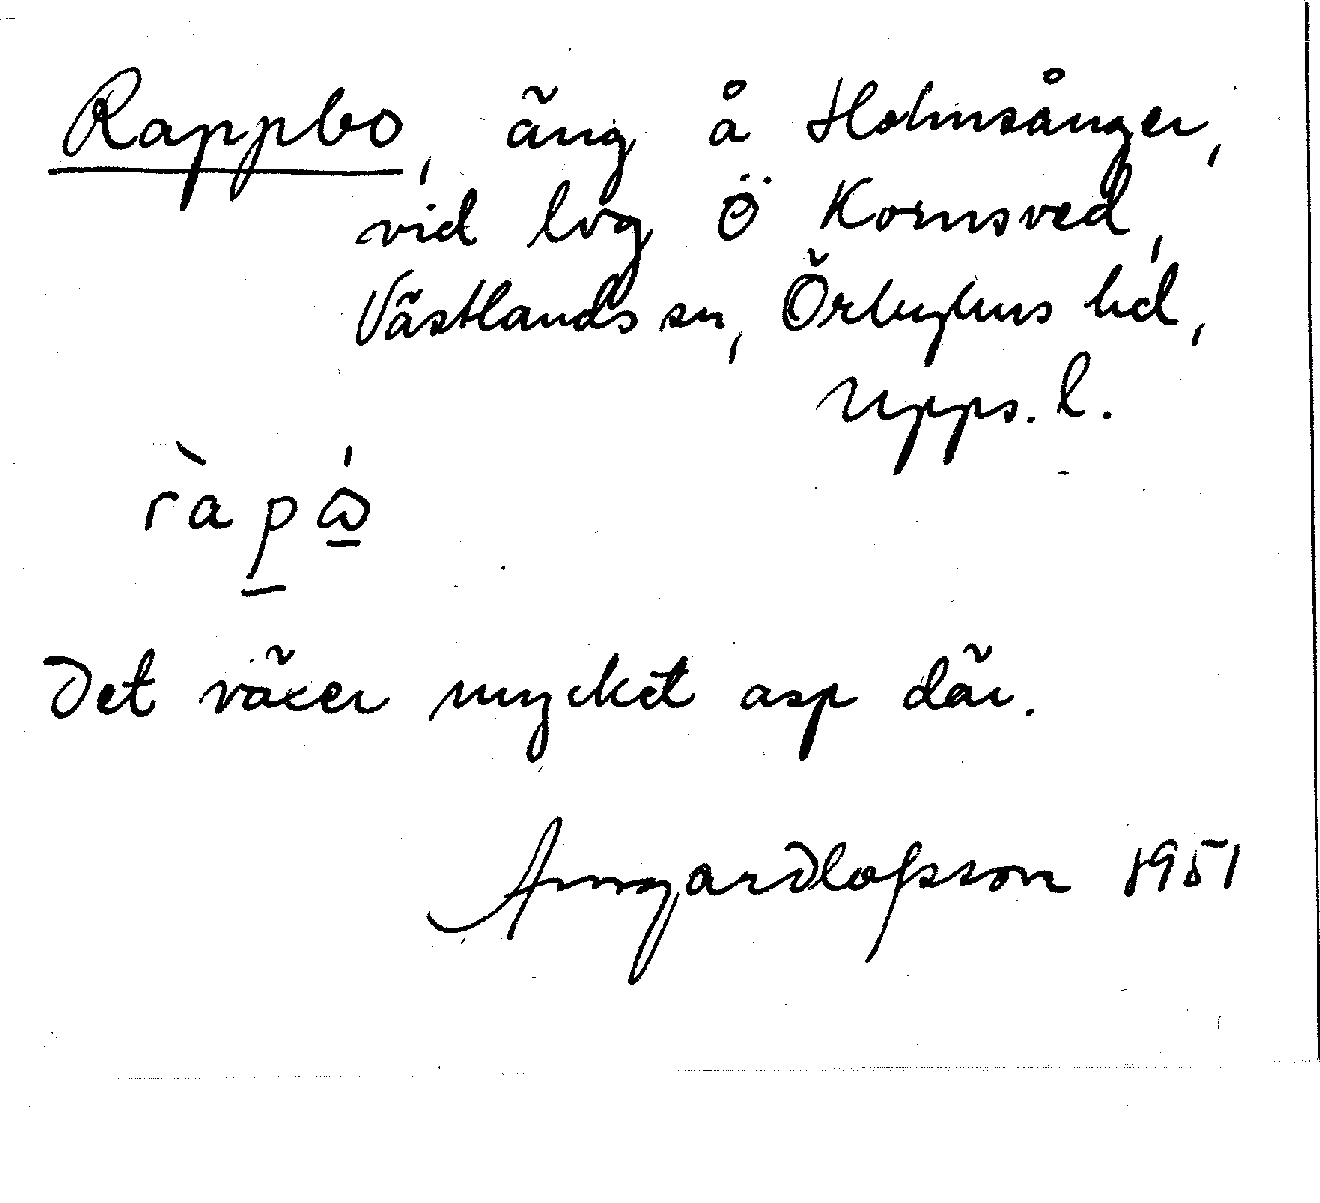 Rappbo, äng å Holmsånger,
vid lvg Ö Kornsved,
Västlands sn, Örbyhus hd,
Upps. l.
ràpώ̲
Det växer mycket asp där.
Olofsson 1951